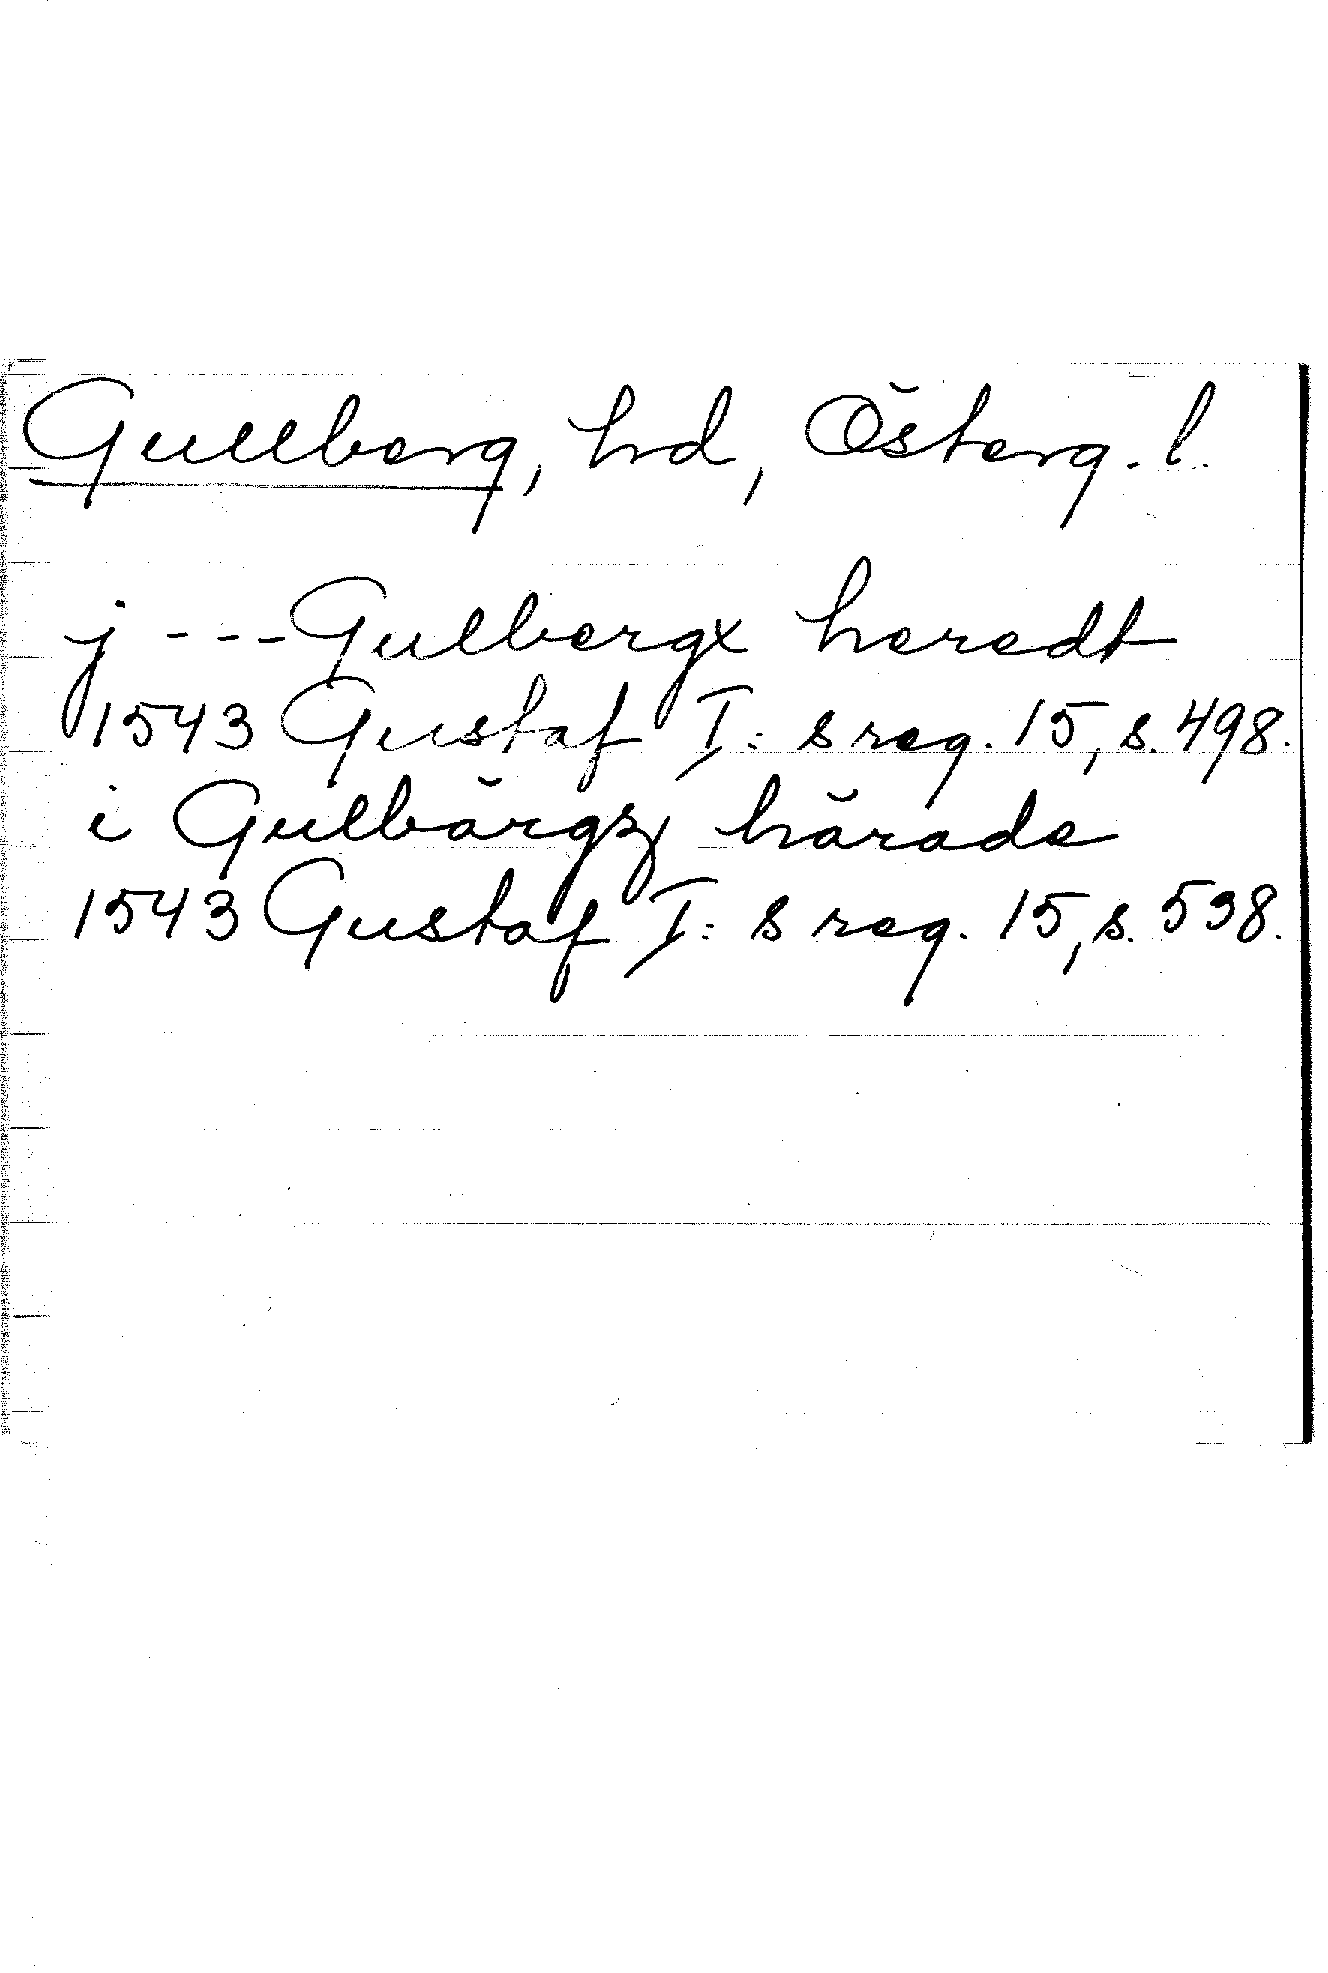 Gullberg, hd, Österg. l.
j --- Gulbergx heredt
1543 Gustaf I: s reg. 15, s. 498.
i Gulbärgz härade
1543 Gustaf I: s reg. 15, s. 538.